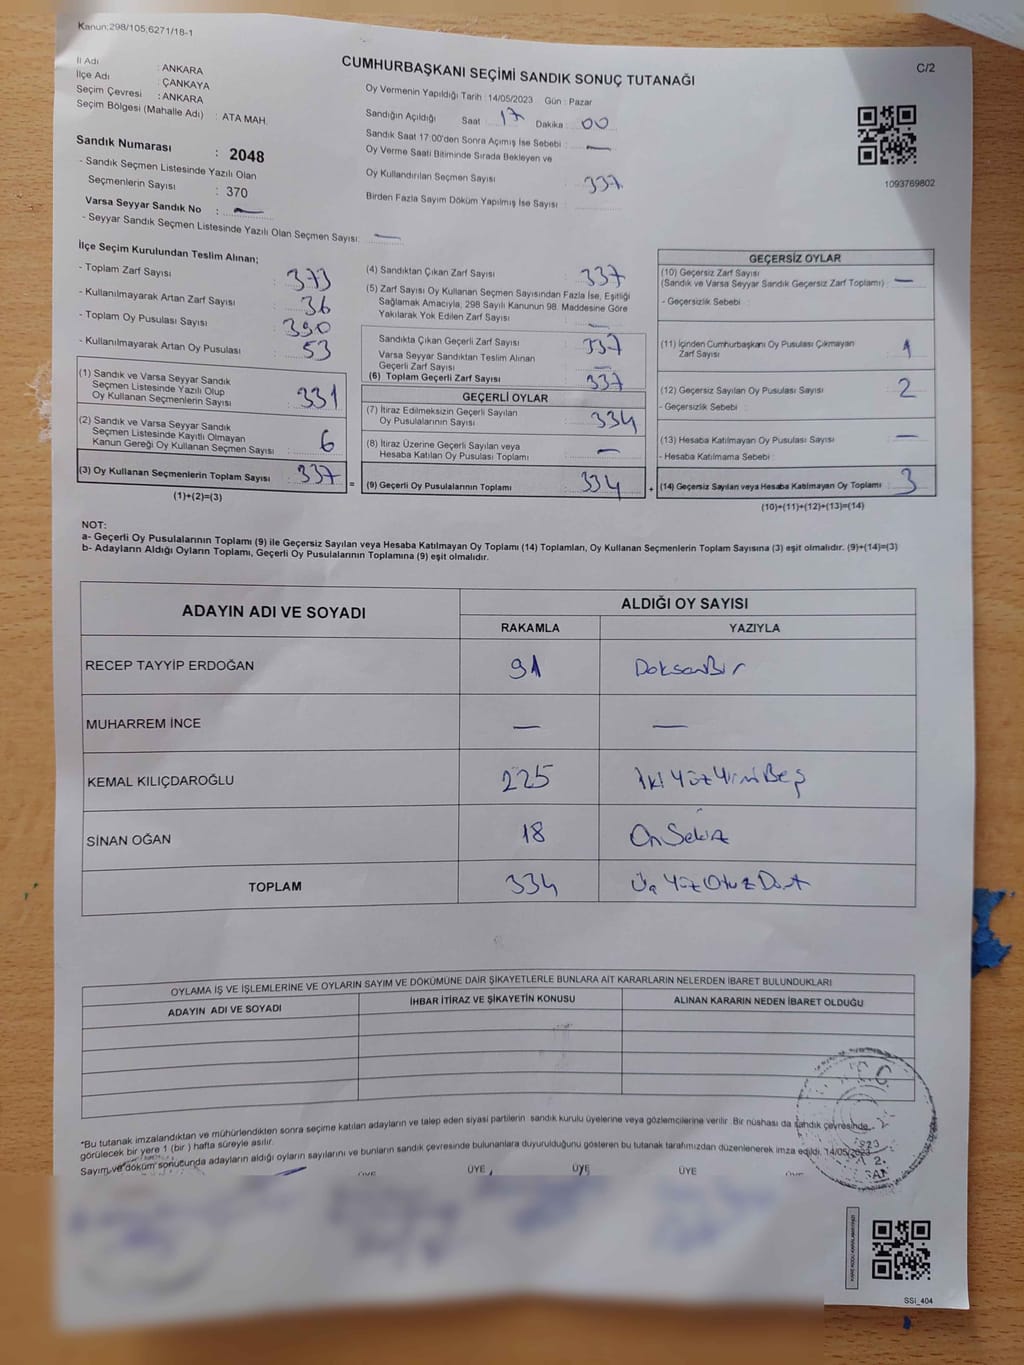 Kanun:298/105;6271/18-1
C/2
CUMHURBAŞKANI SEÇİMİ SANDIK SONUÇ TUTANAĞI
İl Adı : ANKARA
İlçe Adı : ÇANKAYA
Seçim Çevresi : ANKARA
Seçim Bölgesi (Mahalle Adı) : ATA MAH.
Sandık Numarası : 2048
- Sandık Seçmen Listesinde Yazılı Olan
Seçmenlerin Sayısı : 370
Varsa Seyyar Sandık No : —
- Seyyar Sandık Seçmen Listesinde Yazılı Olan Seçmen Sayısı: —
Oy Vermenin Yapıldığı Tarih : 14/05/2023 Gün : Pazar
Sandığın Açıldığı Saat : 17 Dakika : 00
Sandık Saat 17:00'den Sonra Açımış İse Sebebi : —
Oy Verme Saati Bitiminde Sırada Bekleyen ve
Oy Kullandırılan Seçmen Sayısı : 337
Birden Fazla Sayım Döküm Yapılmış İse Sayısı :
1093769802
İlçe Seçim Kurulundan Teslim Alınan;
- Toplam Zarf Sayısı : 373
- Kullanılmayarak Artan Zarf Sayısı : 36
- Toplam Oy Pusulası Sayısı : 390
- Kullanılmayarak Artan Oy Pusulası : 53
(1) Sandık ve Varsa Seyyar Sandık
Seçmen Listesinde Yazılı Olup
Oy Kullanan Seçmenlerin Sayısı : 331
(2) Sandık ve Varsa Seyyar Sandık
Seçmen Listesinde Kayıtlı Olmayan
Kanun Gereği Oy Kullanan Seçmen Sayısı : 6
(3) Oy Kullanan Seçmenlerin Toplam Sayısı : 337
(1)+(2)=(3)
=
(4) Sandıktan Çıkan Zarf Sayısı : 337
(5) Zarf Sayısı Oy Kullanan Seçmen Sayısından Fazla İse, Eşitliği
Sağlamak Amacıyla; 298 Sayılı Kanunun 98. Maddesine Göre
Yakılarak Yok Edilen Zarf Sayısı : —
Sandıkta Çıkan Geçerli Zarf Sayısı : 337
Varsa Seyyar Sandıktan Teslim Alınan
Geçerli Zarf Sayısı : —
(6) Toplam Geçerli Zarf Sayısı : 337
GEÇERLİ OYLAR
(7) İtiraz Edilmeksizin Geçerli Sayılan
Oy Pusulalarının Sayısı : 334
(8) İtiraz Üzerine Geçerli Sayılan veya
Hesaba Katılan Oy Pusulası Toplamı : —
(9) Geçerli Oy Pusulalarının Toplamı : 334
+
GEÇERSİZ OYLAR
(10) Geçersiz Zarf Sayısı
(Sandık ve Varsa Seyyar Sandık Geçersiz Zarf Toplamı) : —
- Geçersizlik Sebebi :
(11) İçinden Cumhurbaşkanı Oy Pusulası Çıkmayan
Zarf Sayısı : 1
(12) Geçersiz Sayılan Oy Pusulası Sayısı : 2
- Geçersizlik Sebebi :
(13) Hesaba Katılmayan Oy Pusulası Sayısı : —
- Hesaba Katılmama Sebebi :
(14) Geçersiz Sayılan veya Hesaba Katılmayan Oy Toplamı : 3
(10)+(11)+(12)+(13)=(14)
NOT:
a- Geçerli Oy Pusulalarının Toplamı (9) ile Geçersiz Sayılan veya Hesaba Katılmayan Oy Toplamı (14) Toplamları, Oy Kullanan Seçmenlerin Toplam Sayısına (3) eşit olmalıdır. (9)+(14)=(3)
b- Adayların Aldığı Oyların Toplamı, Geçerli Oy Pusulalarının Toplamına (9) eşit olmalıdır.
ADAYIN ADI VE SOYADI ALDIĞI OY SAYISI
RAKAMLA YAZIYLA
RECEP TAYYİP ERDOĞAN 91 DoksanBir
MUHARREM İNCE — —
KEMAL KILIÇDAROĞLU 225 İki Yüz YirmiBeş
SİNAN OĞAN 18 OnSekiz
TOPLAM 334 Üç Yüz Otuz Dört
OYLAMA İŞ VE İŞLEMLERİNE VE OYLARIN SAYIM VE DÖKÜMÜNE DAİR ŞİKAYETLERLE BUNLARA AİT KARARLARIN NELERDEN İBARET BULUNDUKLARI
ADAYIN ADI VE SOYADI İHBAR İTİRAZ VE ŞİKAYETİN KONUSU ALINAN KARARIN NEDEN İBARET OLDUĞU
*Bu tutanak imzalandıktan ve mühürlendikten sonra seçime katılan adayların ve talep eden siyasi partilerin sandık kurulu üyelerine veya gözlemcilerine verilir. Bir nüshası da sandık çevresinde
görülecek bir yere 1 (bir) hafta süreyle asılır.
Sayım ve döküm sonucunda adayların aldığı oyların sayılarını ve bunların sandık çevresinde bulunanlara duyurulduğunu gösteren bu tutanak tarafımızdan düzenlenerek imza edildi. 14/05/2023
ÜYE ÜYE ÜYE ÜYE
SSI_404